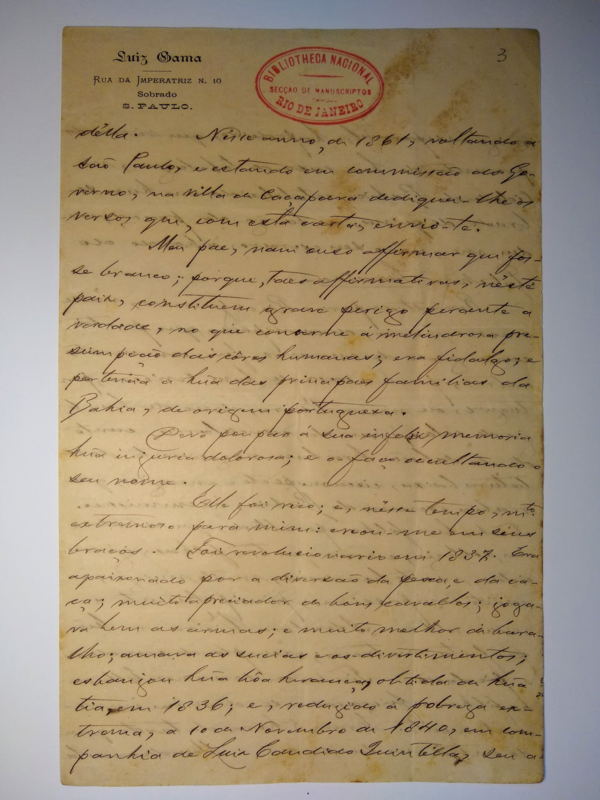 Luiz Gama
RUA DA IMPERATRIZ N. 10
Sobrado
S. PAULO.
BIBLIOTHECA NACIONAL
SECÇÃO DE MANUSCRIPTOS
RIO DE JANEIRO
3
délla. Nésse anno, de 1861, voltando a
São Paulo, e estando em commissão do Go-
verno, na villa de Caçapava dediquei-lhe os
versos que, com esta carta, envio-te.
Meu pae, não ouso affirmar que fos-
se branco; porque, taes affirmativas, néste
paiz, constituem grave perigo perante a
verdade, no que concerne á melindrosa pre-
sumpção das côres humanas; era fidalgo; e
pertencia a hũa das principaes familias da
Bahia, de origem portugueza.
Devo poupar á sua infeliz memoria
hũa injuria dolorosa; e o faço occultando o
seu nome.
Elle foi rico; e, nésse tempo, mto
extremoso para mim: creou-me em seus
braços. Foi revolucionario em 1837. Era
apaixonado por a diversão da pesca e da ca-
ça; muito apreciador de bons cavallos; joga-
va bem as armas; e muito melhor de bara-
lho; amava as sucias e os divertimentos;
esbanjou hũa bôa herança, obtida de hũa
tia, em 1836; e, reduzido á pobreza ex-
trema, a 10 de Novembro de 1840, em com-
panhia de Luiz Candido Quintella, seu a